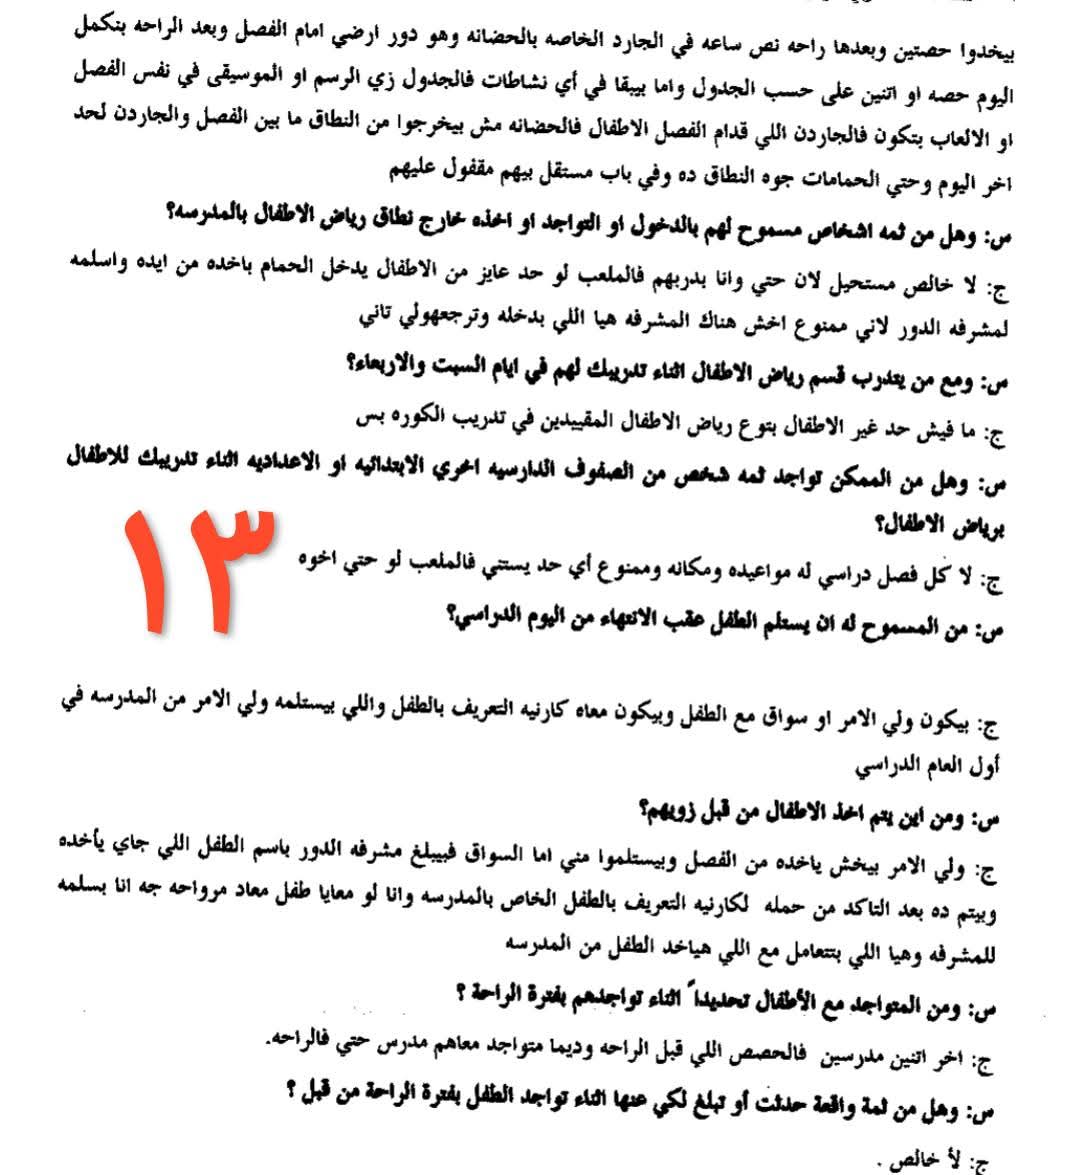 بيخدوا حصتين وبعدها راحه نص ساعه في الجارد الخاصه بالحضانه وهو دور ارضي امام الفصل وبعد الراحه بنكمل
اليوم حصه او اتنين على حسب الجدول واما بيبقا في أي نشاطات فالجدول زي الرسم او الموسيقى في نفس الفصل
او الالعاب بتكون فالجاردن اللي قدام الفصل الاطفال فالحضانه مش بيخرجوا من النطاق ما بين الفصل والجاردن لحد
اخر اليوم وحتي الحمامات جوه النطاق ده وفي باب مستقل بيهم مقفول عليهم
س: وهل من ثمه اشخاص مسموح لهم بالدخول او التواجد او اخذه خارج نطاق رياض الاطفال بالمدرسه؟
ج: لا خالص مستحيل لان حتي وانا بدربهم فالملعب لو حد عايز من الاطفال يدخل الحمام باخده من ايده واسلمه
لمشرفه الدور لاني ممنوع اخش هناك المشرفه هيا اللي بدخله وترجعهولي تاني
س: ومع من يتدرب قسم رياض الاطفال اثناء تدريبك لهم في ايام السبت والاربعاء؟
ج: ما فيش حد غير الاطفال بتوع رياض الاطفال المقييدين في تدريب الكوره بس
س: وهل من الممكن تواجد ثمه شخص من الصفوف الدارسيه اخري الابتدائيه او الاعداديه اثناء تدريبك للاطفال
برياض الاطفال؟
ج: لا كل فصل دراسي له مواعيده ومكانه وممنوع أي حد يستني فالملعب لو حتي اخوه
١٣
س: من المسموح له ان يستلم الطفل عقب الانتهاء من اليوم الدراسي؟
ج: بيكون ولي الامر او سواق مع الطفل وبيكون معاه كارنيه التعريف بالطفل واللي بيستلمه ولي الامر من المدرسه في
أول العام الدراسي
س: ومن اين يتم اخذ الاطفال من قبل زويهم؟
ج: ولي الامر بيخش ياخده من الفصل وبيستلموا مني اما السواق فبيبلغ مشرفه الدور باسم الطفل اللي جاي يأخده
وبيتم ده بعد التاكد من حمله لكارنيه التعريف بالطفل الخاص بالمدرسه وانا لو معايا طفل معاد مرواحه جه انا بسلمه
للمشرفه وهيا اللي بتتعامل مع اللي هياخد الطفل من المدرسه
س: ومن المتواجد مع الأطفال تحديداً اثناء تواجدهم بفترة الراحة ؟
ج: اخر اتنين مدرسين فالحصص اللي قبل الراحه وديما متواجد معاهم مدرس حتي فالراحه.
س: وهل من ثمة واقعة حدثت أو تبلغ لكي عنها اثناء تواجد الطفل بفترة الراحة من قبل ؟
ج: لأ خالص .